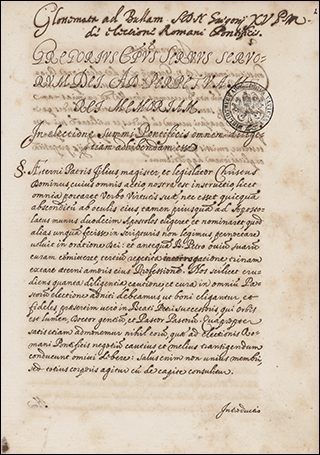 Glossemata ad Bullam SDN Gregorij XV P.M.
de electione Romani Pontificis.
GREGORIUS EPUS SERVUS SERVO-
RUM DEI AD PERPETUAM
REI MEMORIAM.
In electione Summi Pontificis omnem diligen-
tiam adhibendam esse
§. Æterni Patris filius magister, et legislator Christus
Dominus cuius omnis actio nostra est instructio licet
omnia portaret Verbo Virtutis suæ nec esset quicquam
absconditum ab oculis eius tamen priusquam ad Apostolatus
munus duodecim Apostolos eligeret et nominaret quod
alias unquam fecisse in scripturis non legimus pernoctare
voluit in oratione Dei: et antequam B. Petro ovium suarum
curam committeret certum repetita interrogatione trinam
exactæ æterni amoris eius Professionem. Nos scilicet eru-
diens quanta diligentia cautione, et cura in omnium Pas-
torum electione adniti debeamus ut boni eligantur, et
fideles præsertim vero in Beati Petri successoris qui orbis
est lumen, Doctor gentium, et Pastor Pastorum. Quapropter
satis etiam admonemur nihil eorum, quæ ad electionis Ro-
mani Pontificis negotium cautius et melius transigendum
conducunt omitti debere: Salus enim non unius membri,
sed totius corporis agitur cum de capite consulitur.
Introductio